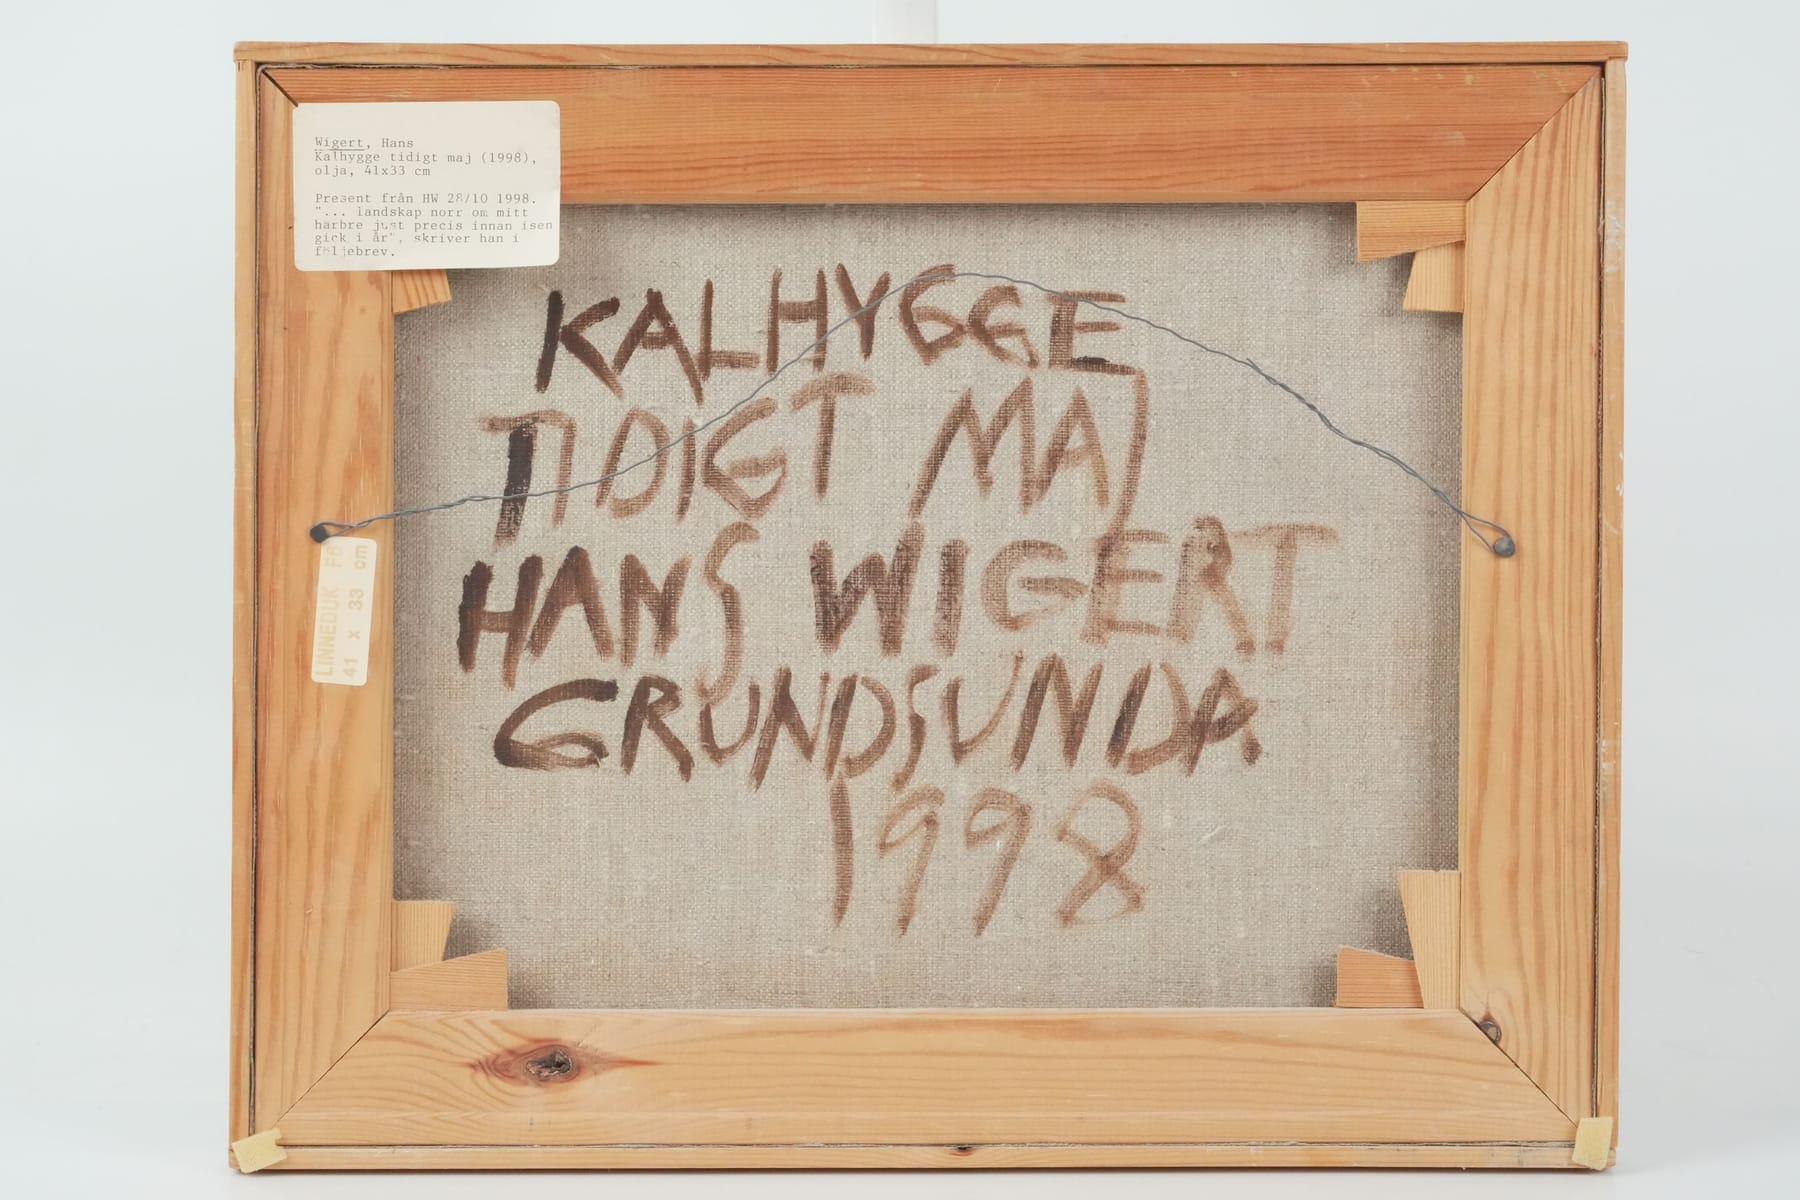 Wigert, Hans
Kalhygge tidigt maj (1998),
olja, 41x33 cm
Present från HW 28/10 1998.
"... landskap norr om mitt
härbre just precis innan isen
gick i år", skriver han i
följebrev.
KALHYGGE
TIDIGT MAJ
HANS WIGERT
GRUNDSUNDA
1998
LINNEDUK F6
41 x 33 cm